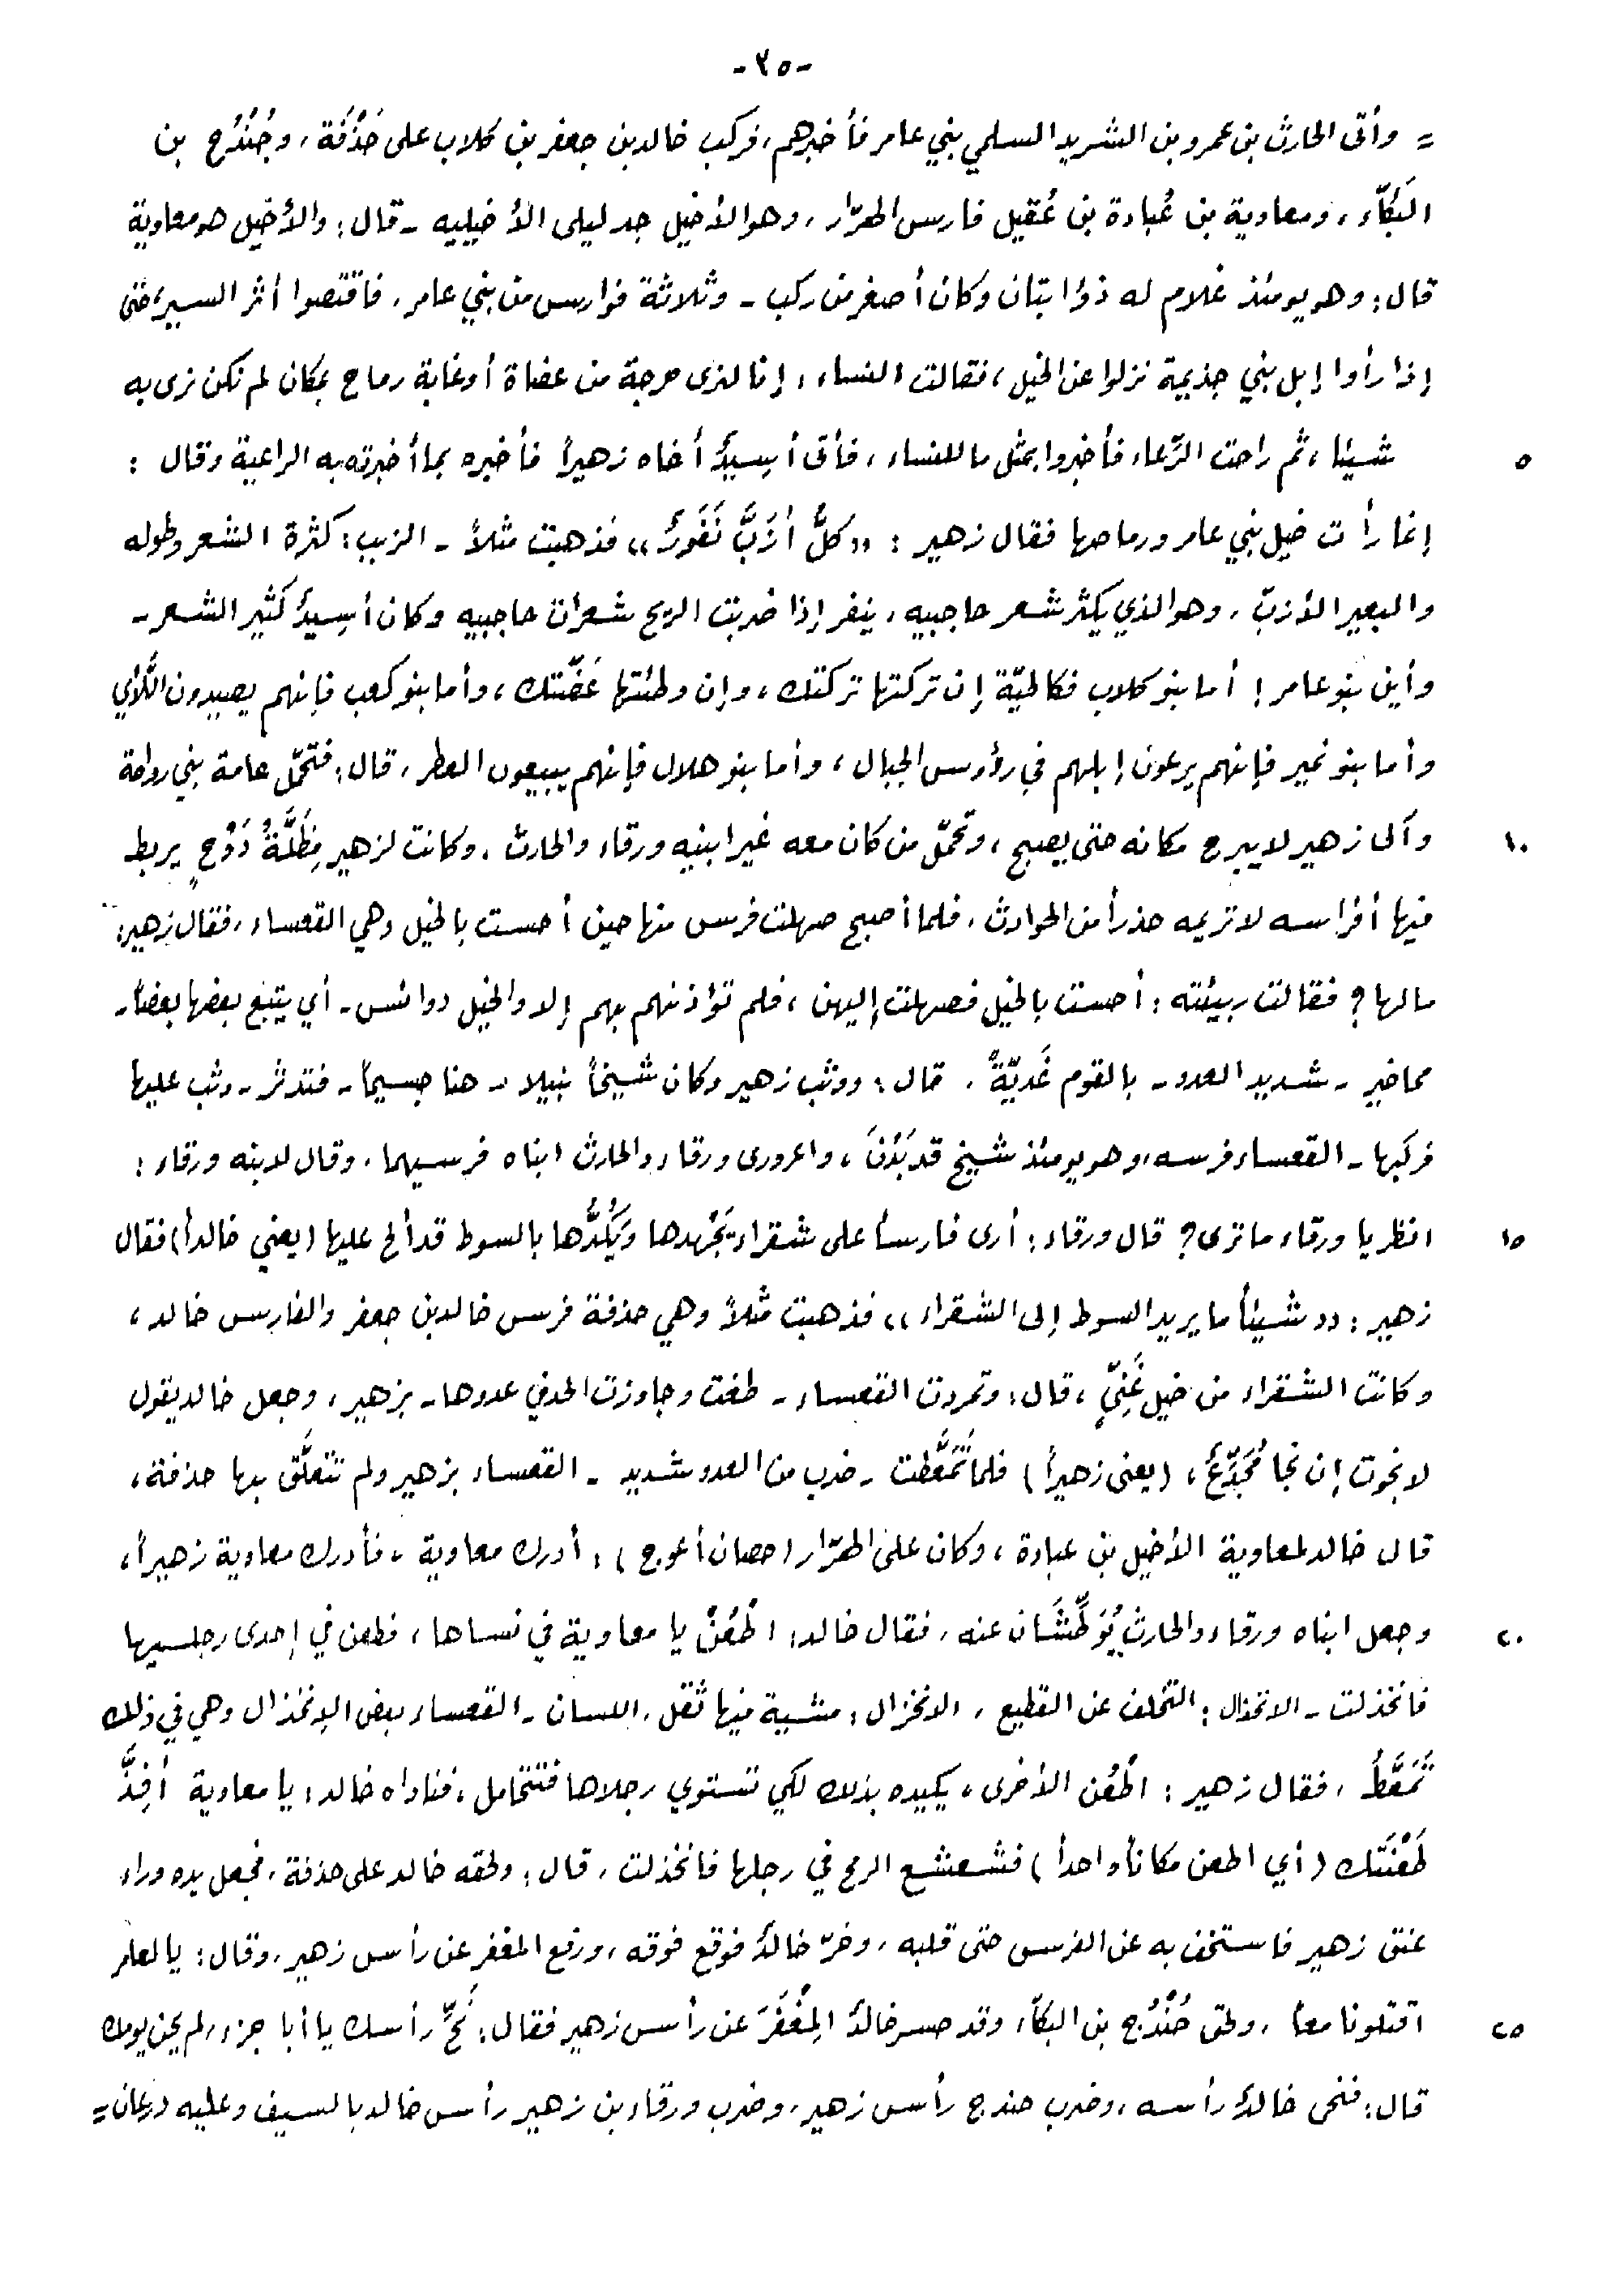 -٣٥-
= وأتى الحارث بن عمرو بن الشريد السلمي بني عامر فأخبرهم، فركب خالد بن جعفر بن كلاب على حَذْفَة، وجُنْدُح بن
البَكَّاء، ومعاوية بن عُبادة بن عُقيل فارس الهرّار، وهو الأخيل جد ليلى الأخيليه - قال: والأخيل هو معاوية
قال: وهو يومئذ غلام له ذؤابتان وكان أصغر من ركب - وثلاثة فوارس من بني عامر، فاقتصوا أثر السير، حتى
إذا رأوا إبل بني جذيمة نزلوا عن الخيل، فقالت النساء: إنا لنرى حرجة من عضاة أو غابة رماح بمكان لم نكن نرى به
٥ شيئا، ثم راحت الرَّعاء فأخبروا بمثل ما للنساء، فأتى أسِيدٌ أخاه زهيراً فأخبره بما أخبرته به الراعية وقال:
إنما رأت خيل بني عامر ورماحها فقال زهير: «كلُّ أزَبَّ نَفُورٌ» فذهبت مثلاً - الزبب: كثرة الشعر وطوله
والبعير الأزبّ، وهو الذي يكثر شعر حاجبيه، ينفر إذا ضربت الريح شعرات حاجبيه وكان أسِيدٌ كثير الشعر -
وأين بنو عامر! أما بنو كلاب فكالحيّة إن تركتها تركتك، وإن وطئتها عَضَّتك، وأما بنو كعب فإنهم يصيدون اللَّأي
وأما بنو نمير فإنهم يرعون إبلهم في رؤوس الجبال، وأما بنو هلال فإنهم يبيعون العطر، قال: فتحمّل عامة بني رواحة
١٠ وآلى زهير لا يبرح مكانه حتى يصبح، وتحمّل من كان معه غير ابنيه ورقاء والحارث، وكانت لزهير مِظَلَّةُ دَوْحٍ يربط
فيها أفراسه لا تريمه حذراً من الحوادث، فلما أصبح صهلت فرس منها حين أحست بالخيل وهي القعساء، فقال زهير:
مالها؟ فقالت ربيئته: أحست بالخيل فصهلت إليهن، فلم تؤذنهم بهم إلا والخيل دوائس - أي يتبع بعضها بعضاً -
محاضير - شديد العدو - بالقوم غُديّةً، قال: ووثب زهير وكان شيخاً نبيلا - هنا جسيماً - فتدثر - وثب عليها
فركبها - القعساء فرسه، وهو يومئذ شيخ قد بَدُنَ، واعرورى ورقاء والحارث ابناه فرسيهما، وقال لابنه ورقاء:
١٥ انظر يا ورقاء ما ترى؟ قال ورقاء: أرى فارساً على شقراء يَجْهدها ويَكُدُّها بالسوط قد ألح عليها (يعني خالداً) فقال
زهير: «شيئاً ما يريد السوط إلى الشقراء» فذهبت مثلاً وهي حذفة فرس خالد بن جعفر والفارس خالد،
وكانت الشقراء من خيل غَنِيٍّ، قال: وتمردت القعساء - طغت وجاوزت الحد في عدوها - بزهير، وجعل خالد يقول
لا نجوت إن نجا مُجَدَّعٌ، (يعنى زهيراً) فلما تَمَعَّطت - ضرب من العدو شديد - القعساء بزهير ولم تتعلَّق بها حذفة،
قال خالد لمعاوية الأخيل بن عبادة، وكان على الهرّار (حصان أعوج): أدرك معاوية، فأدرك معاوية زهيراً،
٢٠ وجعل ابناه ورقاء والحارث يُوَطِّشَان عنه، فقال خالد: اطْعُنْ يا معاوية في نساها، فطعن في إحدى رجليها
فانخذلت - الانخذال: التخلف عن القطيع، الانخزال: مشية فيها ثقل، اللسان - القعساء بعض الانخذال وهي في ذلك
تَمَعَّطُ، فقال زهير: اطْعُن الأخرى، يكيده بذلك لكي تستوي رجلاها فتتحامل، فناداه خالد: يا معاوية أفِذَّ
طَعْنَتَك (أي اطعن مكاناً واحداً) فشعشع الرمح في رجلها فانخذلت، قال: ولحقه خالد على حذفة، فجعل يده وراء
عنق زهير فاستخف به عن الفرس حتى قلبه، وخرّ خالدٌ فوقع فوقه، ورفع المغفر عن رأس زهير، وقال: يا لعامر
٢٥ اقتلونا معاً، ولحق حُنْدُج بن البكّاء وقد حسر خالدٌ المِغْفَرَ عن رأس زهير فقال: نَحِّ رأسك يا أبا جزء، لم يحن يومك
قال: فنحى خالدٌ رأسه، وضرب حندج رأس زهير، وضرب ورقاء بن زهير رأس خالد بالسيف وعليه درعان =